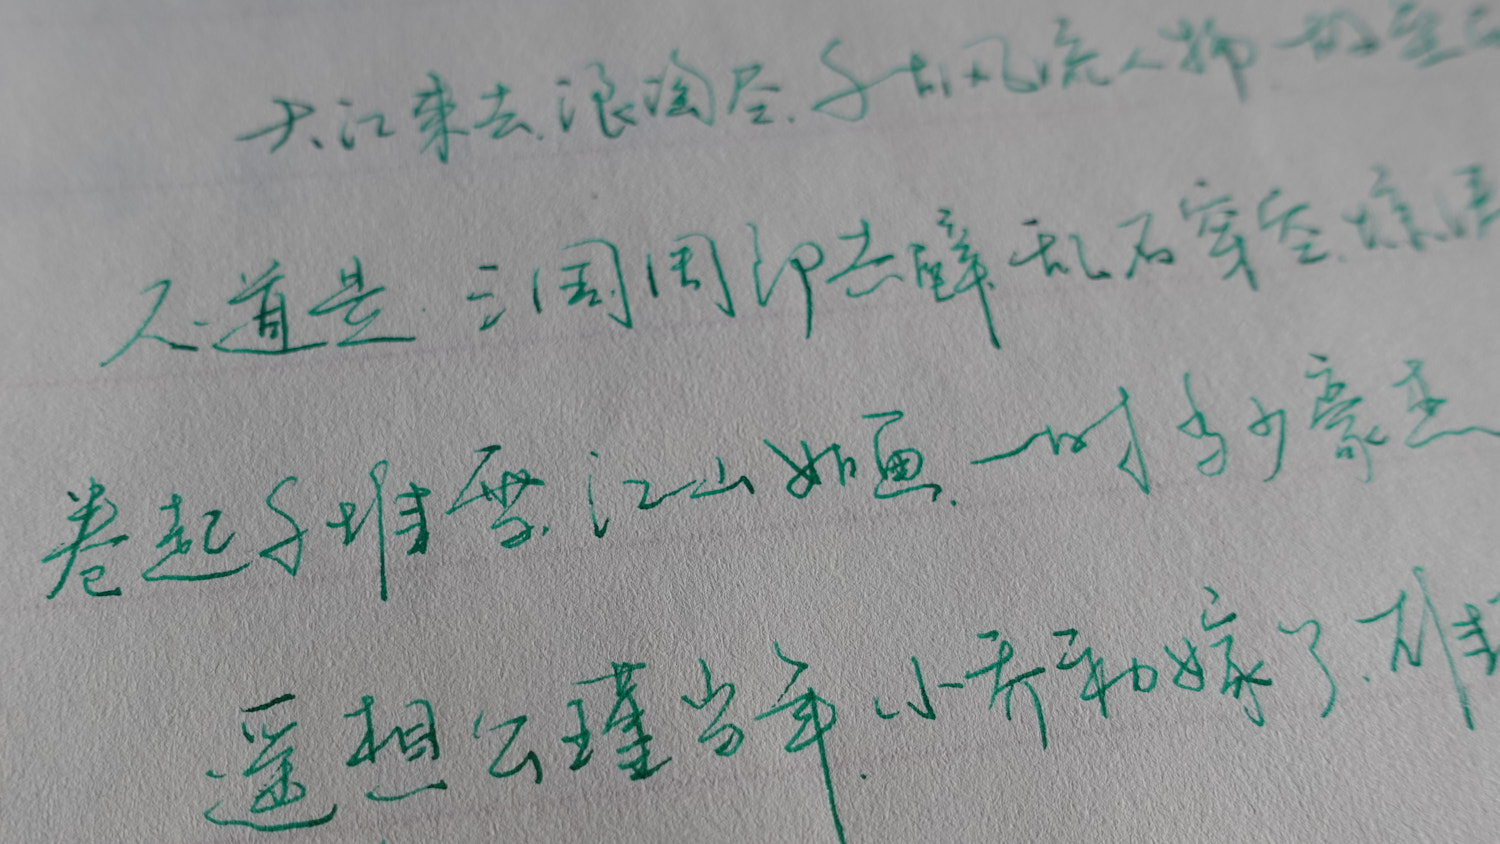 大江東去.浪淘尽.千古风流人物.故垒西
人道是.三国周郎赤壁.乱石穿空.惊涛
卷起千堆雪.江山如画.一时多少豪杰
遥想公瑾当年.小乔初嫁了.雄